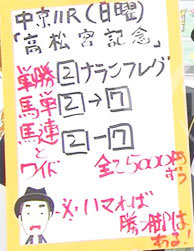 中京11R(日曜)
「高松宮記念」
単勝 2 ナランフレグ
馬単 2→7
馬連 2-7
と
ワイド 全て5000円
ずつ
ハマれば
勝つ